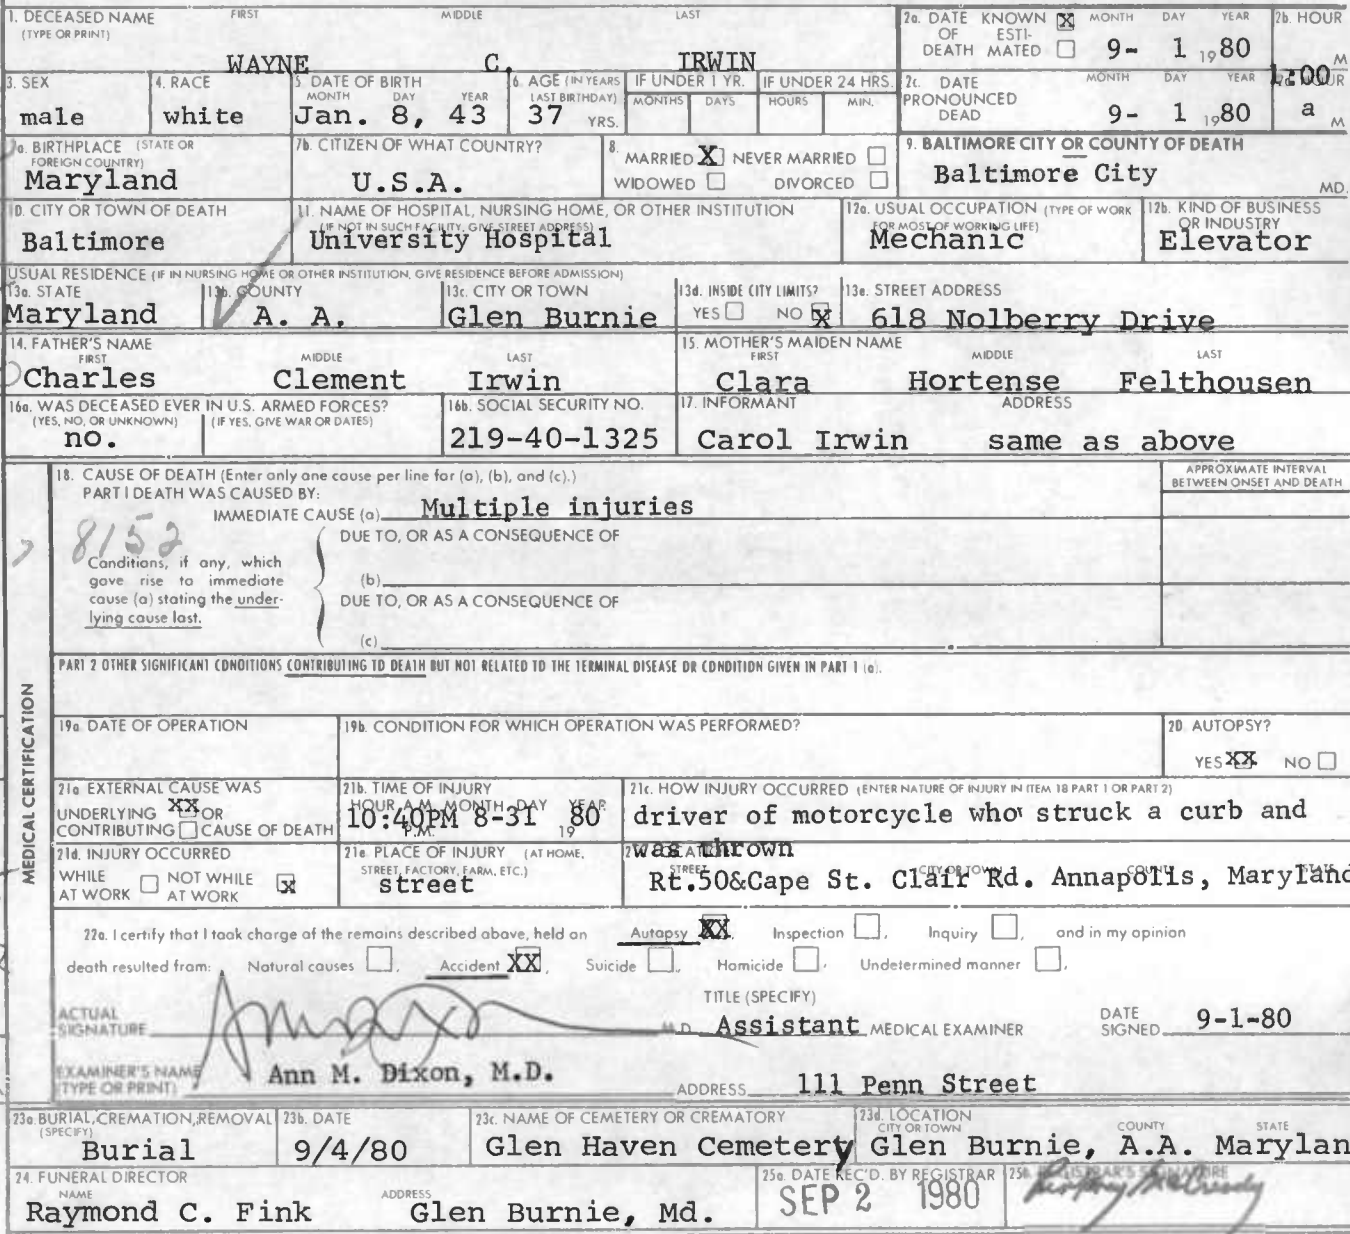 1. DECEASED NAME FIRST MIDDLE LAST
(TYPE OR PRINT)
WAYNE C. IRWIN
2a. DATE KNOWN X MONTH DAY YEAR
OF ESTI-
DEATH MATED 9- 1 1980
2b. HOUR
M
3. SEX
male
4. RACE
white
5. DATE OF BIRTH
MONTH DAY YEAR
Jan. 8, 43
6. AGE (IN YEARS
LAST BIRTHDAY)
37 YRS.
IF UNDER 1 YR.
MONTHS DAYS
IF UNDER 24 HRS.
HOURS MIN.
2c. DATE MONTH DAY YEAR
PRONOUNCED
DEAD 9- 1 1980
1:00
a M
7a. BIRTHPLACE (STATE OR
FOREIGN COUNTRY)
Maryland
7b. CITIZEN OF WHAT COUNTRY?
U.S.A.
8.
MARRIED X NEVER MARRIED
WIDOWED DIVORCED
9. BALTIMORE CITY OR COUNTY OF DEATH
Baltimore City
MD.
10. CITY OR TOWN OF DEATH
Baltimore
11. NAME OF HOSPITAL, NURSING HOME, OR OTHER INSTITUTION
(IF NOT IN SUCH FACILITY, GIVE STREET ADDRESS)
University Hospital
12a. USUAL OCCUPATION (TYPE OF WORK
FOR MOST OF WORKING LIFE)
Mechanic
12b. KIND OF BUSINESS
OR INDUSTRY
Elevator
USUAL RESIDENCE (IF IN NURSING HOME OR OTHER INSTITUTION, GIVE RESIDENCE BEFORE ADMISSION)
13a. STATE
Maryland
13b. COUNTY
A. A.
13c. CITY OR TOWN
Glen Burnie
13d. INSIDE CITY LIMITS?
YES NO X
13e. STREET ADDRESS
618 Nolberry Drive
14. FATHER'S NAME
FIRST MIDDLE LAST
Charles Clement Irwin
15. MOTHER'S MAIDEN NAME
FIRST MIDDLE LAST
Clara Hortense Felthousen
16a. WAS DECEASED EVER IN U.S. ARMED FORCES?
(YES, NO, OR UNKNOWN) (IF YES, GIVE WAR OR DATES)
no.
16b. SOCIAL SECURITY NO.
219-40-1325
17. INFORMANT ADDRESS
Carol Irwin same as above
MEDICAL CERTIFICATION
18. CAUSE OF DEATH (Enter only one cause per line for (a), (b), and (c).)
PART I DEATH WAS CAUSED BY:
IMMEDIATE CAUSE (a) Multiple injuries
APPROXIMATE INTERVAL
BETWEEN ONSET AND DEATH
8152
DUE TO, OR AS A CONSEQUENCE OF
Conditions, if any, which
gave rise to immediate
cause (a) stating the under-
lying cause last.
(b)
DUE TO, OR AS A CONSEQUENCE OF
(c)
PART 2 OTHER SIGNIFICANT CONDITIONS CONTRIBUTING TO DEATH BUT NOT RELATED TO THE TERMINAL DISEASE OR CONDITION GIVEN IN PART 1 (a).
19a. DATE OF OPERATION
19b. CONDITION FOR WHICH OPERATION WAS PERFORMED?
20 AUTOPSY?
YES XX NO
21a EXTERNAL CAUSE WAS
UNDERLYING XX OR
CONTRIBUTING CAUSE OF DEATH
21b. TIME OF INJURY
HOUR A.M. MONTH DAY YEAR
10:40PM 8-31 1980
P.M.
21c. HOW INJURY OCCURRED (ENTER NATURE OF INJURY IN ITEM 18 PART 1 OR PART 2)
driver of motorcycle who struck a curb and
was thrown
21d. INJURY OCCURRED
WHILE NOT WHILE
AT WORK AT WORK x
21e. PLACE OF INJURY (AT HOME,
STREET, FACTORY, FARM, ETC.)
street
STREET CITY OR TOWN COUNTY STATE
Rt.50&Cape St. Clair Rd. Annapolis, Maryland
22a. I certify that I took charge of the remains described above, held on Autopsy XX, Inspection , Inquiry , and in my opinion
death resulted from: Natural causes , Accident XX, Suicide , Homicide , Undetermined manner ,
ACTUAL
SIGNATURE M.D.
TITLE (SPECIFY)
Assistant MEDICAL EXAMINER
DATE
SIGNED 9-1-80
EXAMINER'S NAME
(TYPE OR PRINT) Ann M. Dixon, M.D.
ADDRESS 111 Penn Street
23a. BURIAL, CREMATION, REMOVAL
(SPECIFY)
Burial
23b. DATE
9/4/80
23c. NAME OF CEMETERY OR CREMATORY
Glen Haven Cemetery
23d. LOCATION
CITY OR TOWN COUNTY STATE
Glen Burnie, A.A. Marylan
24. FUNERAL DIRECTOR
NAME ADDRESS
Raymond C. Fink Glen Burnie, Md.
25a. DATE REC'D. BY REGISTRAR
SEP 2 1980
25b. REGISTRAR'S SIGNATURE